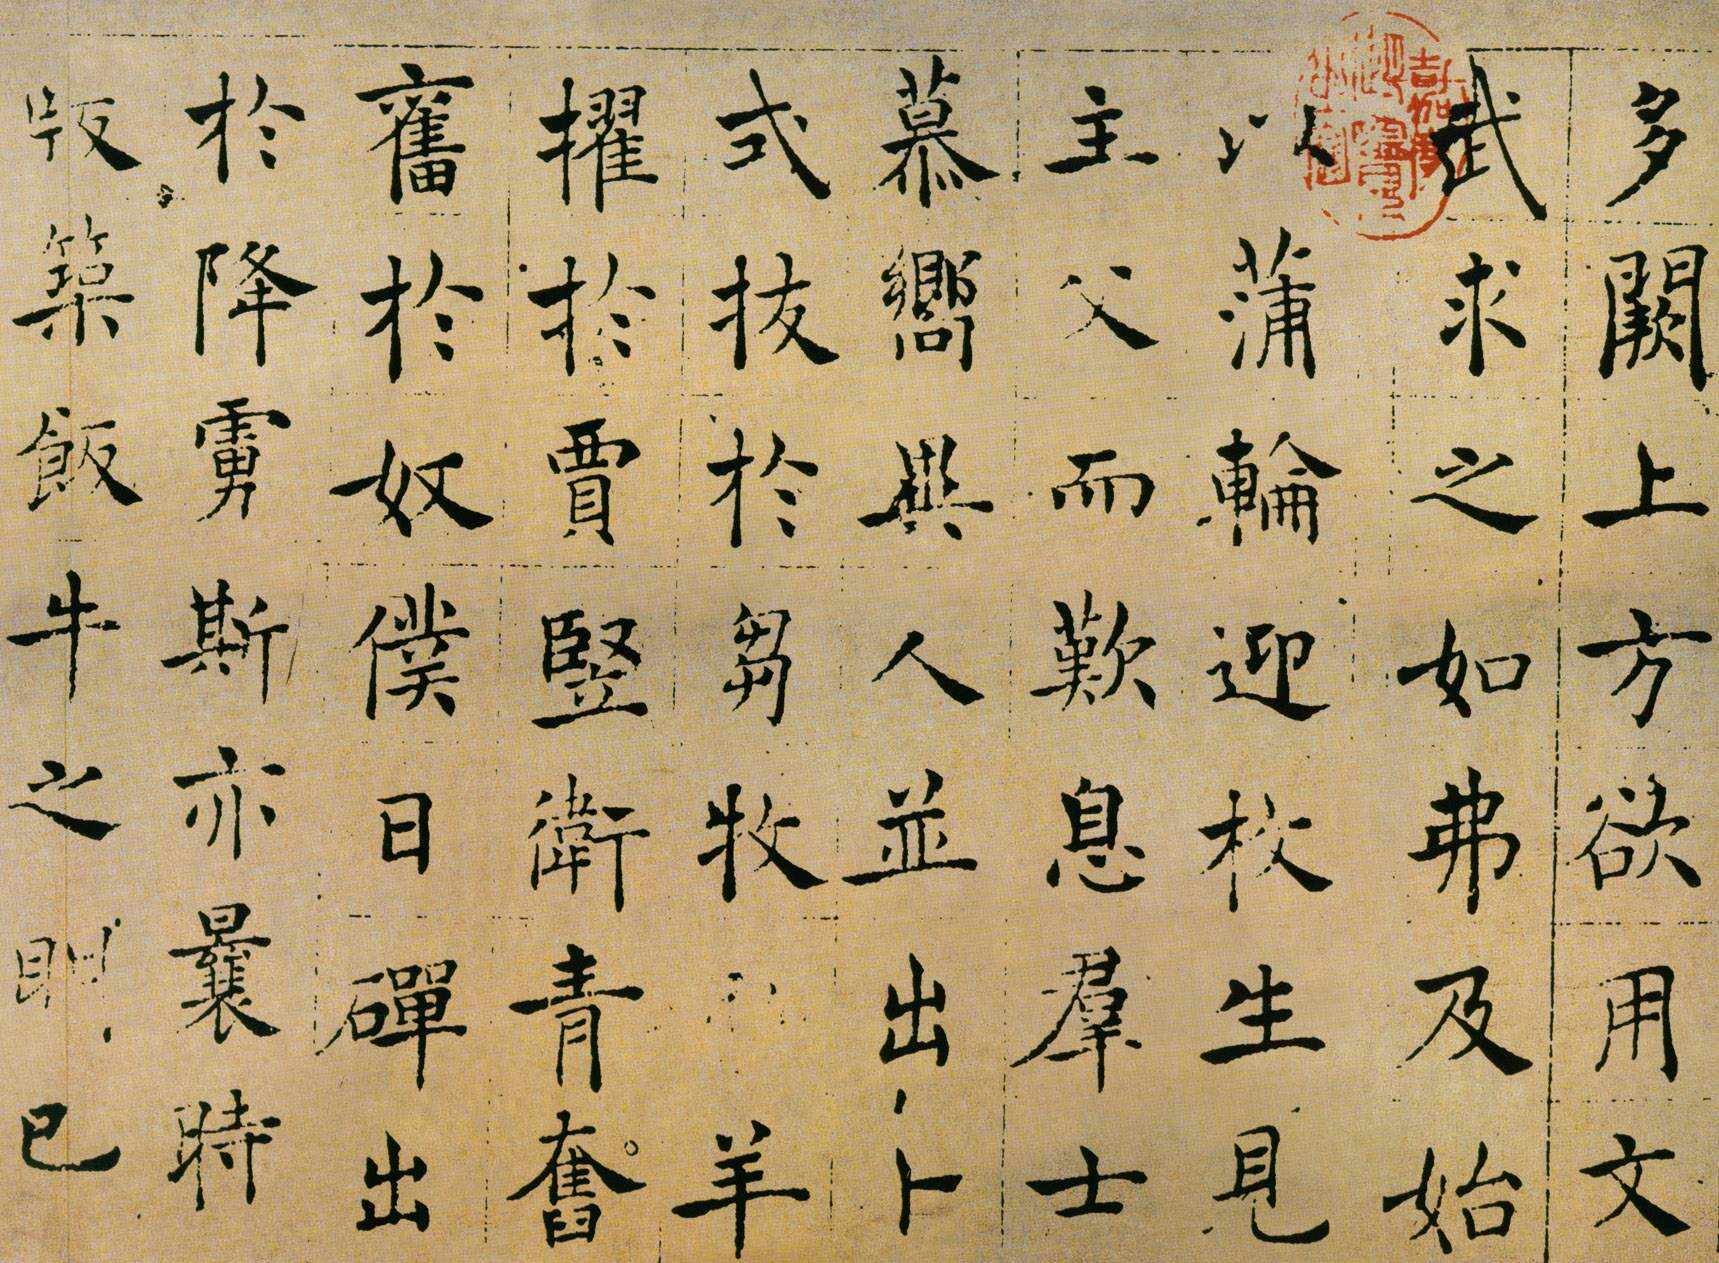 多闕上方欲用文
武求之如弗及始
以蒲輪迎枚生見
主父而歎息羣士
慕嚮異人並出卜
式拔於芻牧羊
擢於賈豎衛青奮
奮於奴僕日磾出
於降虜斯亦曩時
版築飯牛之已
嘉慶御覽之寶